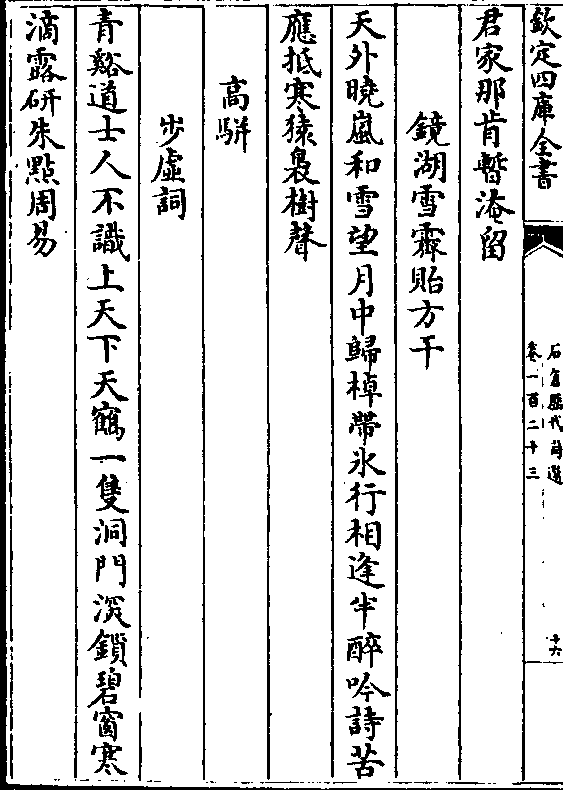 欽定四庫全書
石倉歷代詩選
卷一百二十三
十六
君家那肯暫淹留
鏡湖雪霽貽方干
天外曉嵐和雪望月中歸棹帶氷行相逢半醉吟詩苦
應抵寒猿裊樹聲
高駢
步虛詞
青谿道士人不識上天下天鶴一隻洞門深鎖碧窗寒
滴露研朱點周易